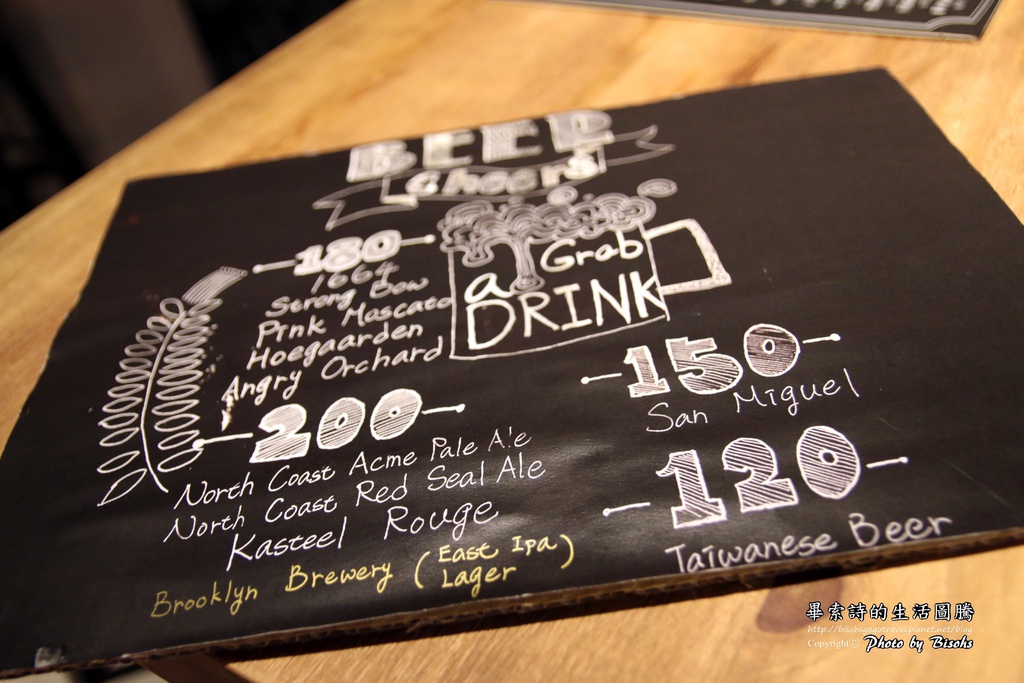 BEER
Cheers
Grab
a
DRINK
180
1664
Strong Bow
Pink Moscato
Hoegaarden
Angry Orchard
200
North Coast Acme Pale Ale
North Coast Red Seal Ale
Kasteel Rouge
Brooklyn Brewery (East Ipa)
Lager
150
San Miguel
120
Taiwanese Beer
畢索詩的生活圖騰
http://bisohsgogo.travel.pixnet.net/blog
Copyright © Photo by Bisohs